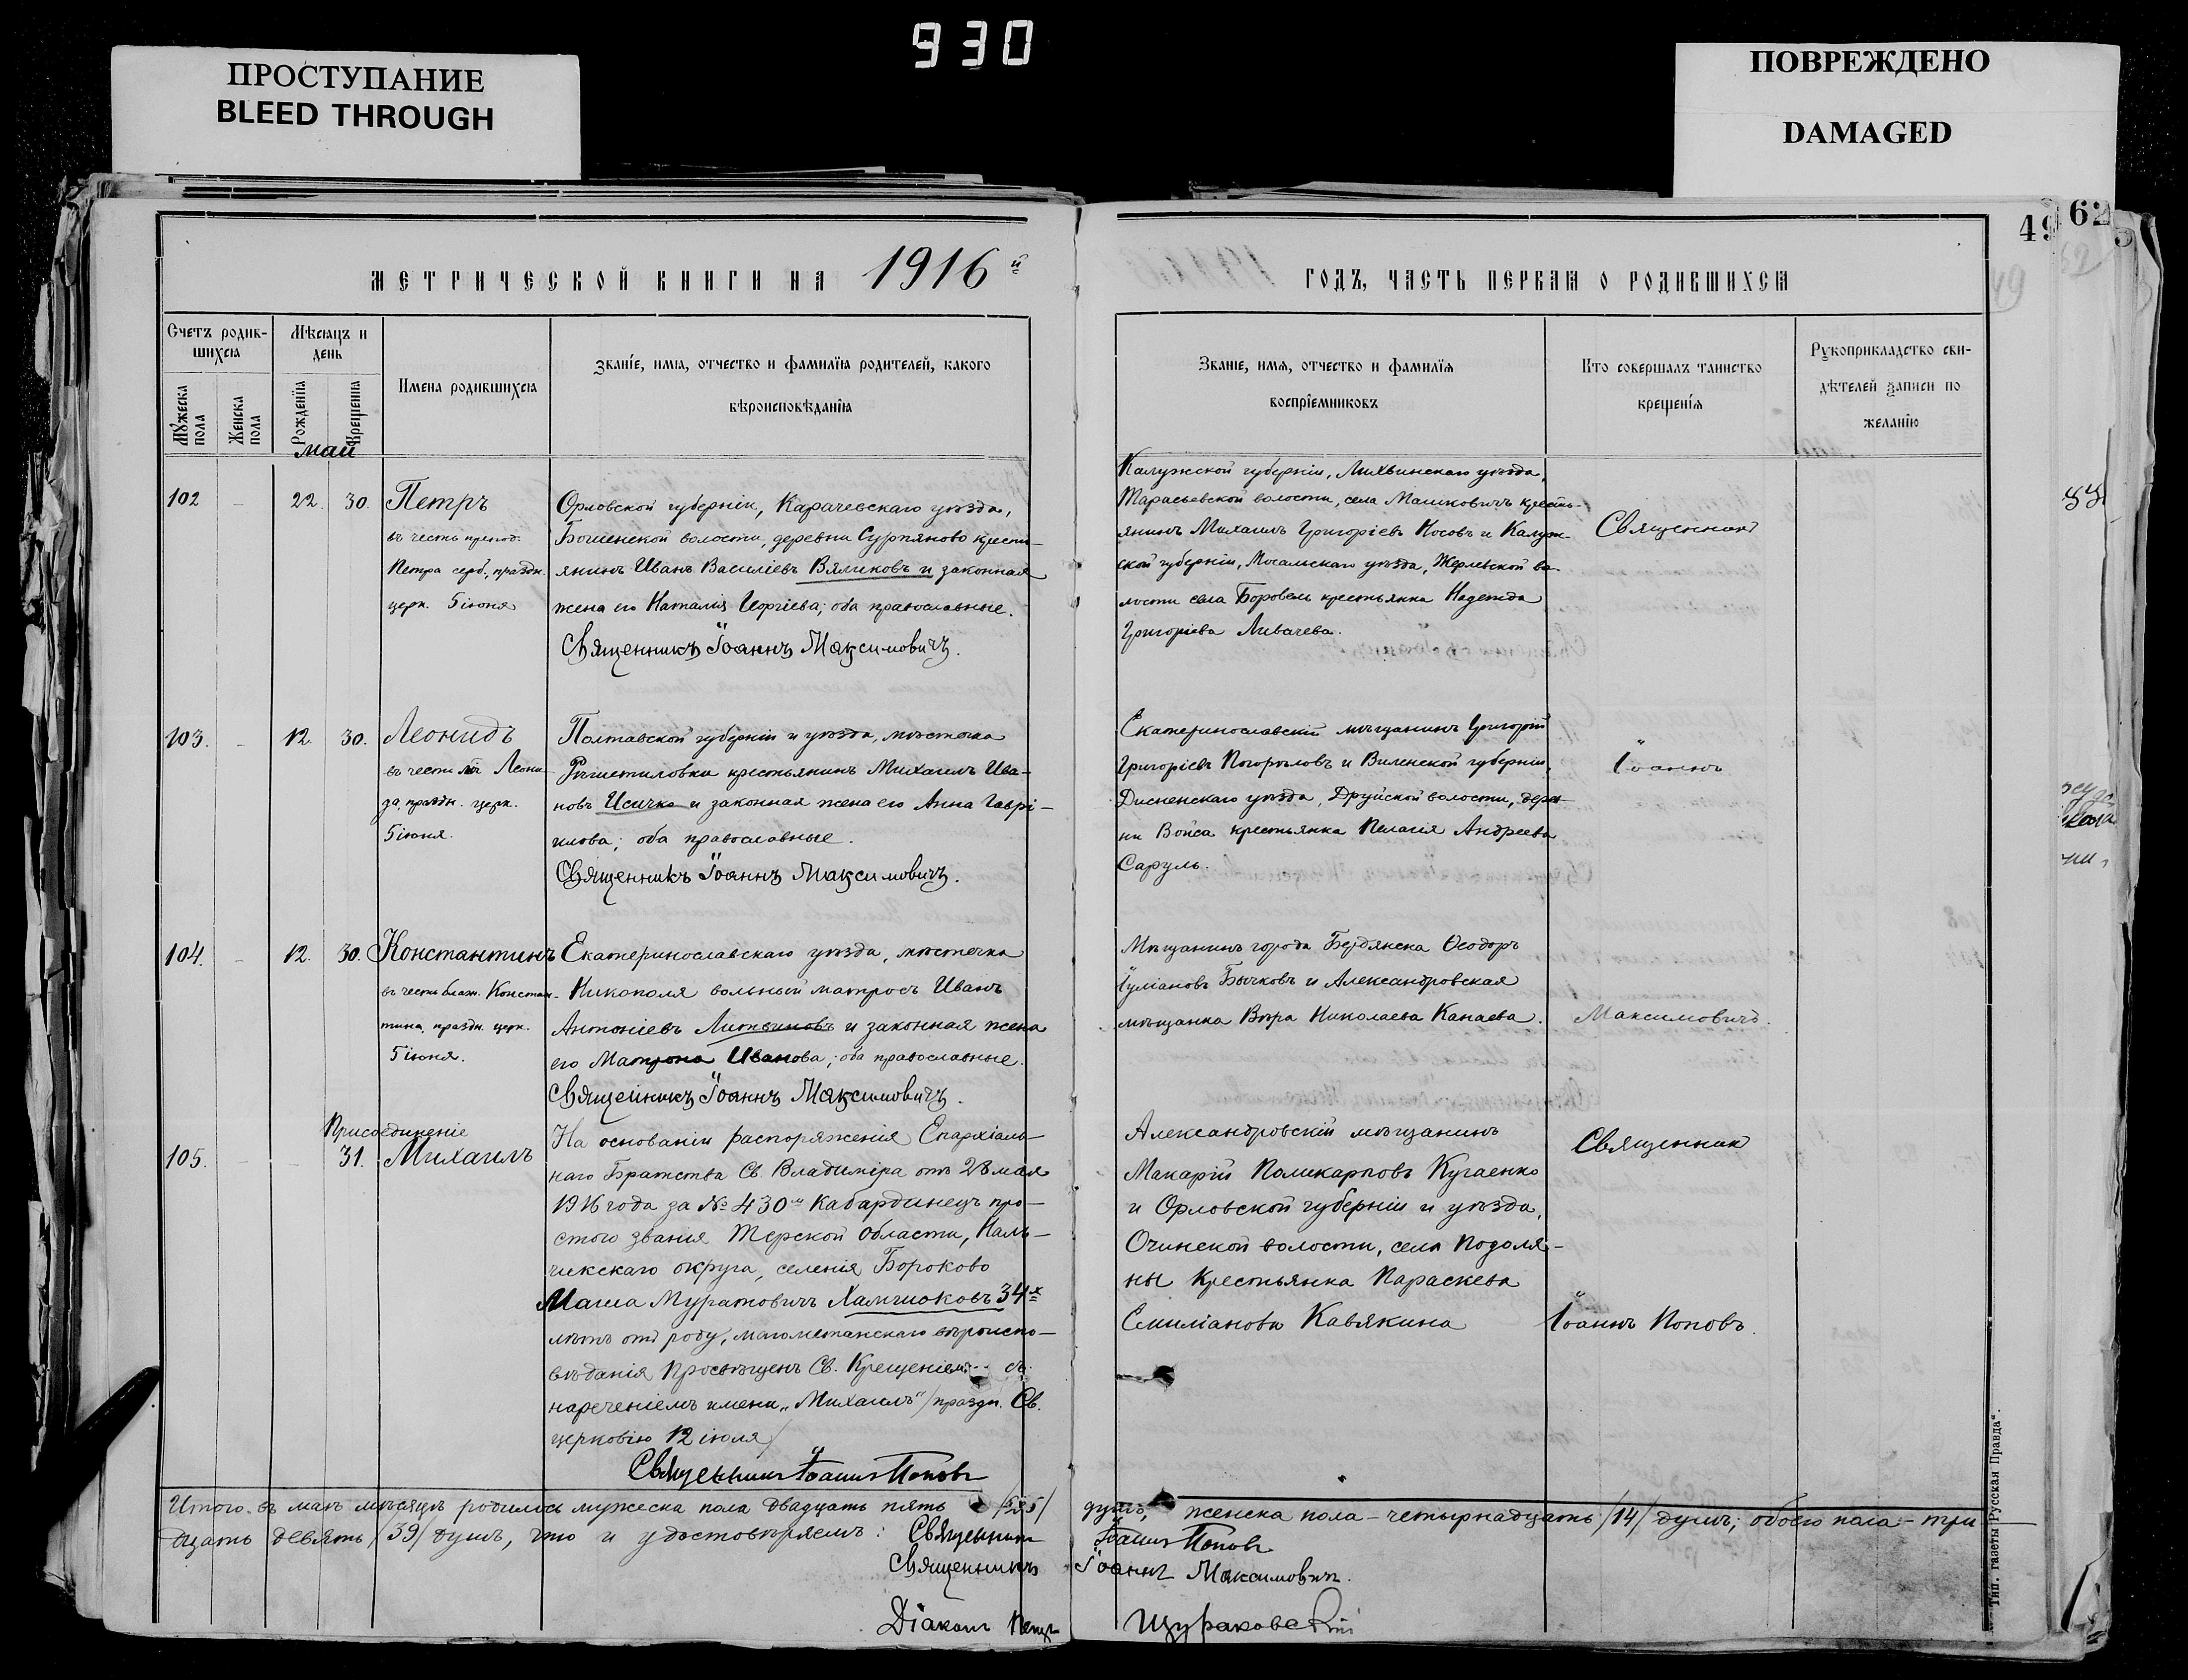 930
ПРОСТУПАНИЕ
BLEED THROUGH
ПОВРЕЖДЕНО
DAMAGED
49
62
МЕТРИЧЕСКОЙ КНИГИ НА 1916й
Счетъ родив-
шихся
Мѣсяцъ и
день
Мужеска пола
Женска пола
Рожденія
Крещенія
Имена родившихся
Званіе, имя, отчество и фамилія родителей, какого
вѣроисповѣданія
май
102 – 22. 30. Петръ
въ честь препод.
Петра серб., праздн.
церк. 5 іюня
Орловской губерніи, Карачевскаго уѣзда,
волости, деревни Сурпяново кресть-
янинъ Иванъ Василіевъ Вяликовъ и законная
жена его Наталія Георгіева; оба православные.
Священникъ Іоаннъ Максимовичъ.
103. – 12. 30. Леонидъ
въ честь мч Леони-
да, праздн. церк.
5 іюня.
Полтавской губерніи и уѣзда, мѣстечка
Рѣшетиловки крестьянинъ Михаилъ Ива-
новъ Исичко и законная жена его Анна Гаврі-
илова; оба православные.
Священникъ Іоаннъ Максимовичъ.
104. – 12. 30. Константинъ
въ честь блаж. Констан-
тина, праздн. церк.
5 іюня.
Екатеринославскаго уѣзда, мѣстечка
Никополя вольный матросъ Иванъ
Антоніевъ Литвиновъ и законная жена
его Матрона Иванова; оба православные.
Священникъ Іоаннъ Максимовичъ.
Присоединеніе
105. – – 31. Михаилъ
На основаніи распоряженія Епархіаль-
наго Братства Св. Владиміра отъ 28 мая
1916 года за № 430м Кабардинецъ про-
стого званія Терской Области, Наль-
чикскаго округа, селенія Бороково
Маша Муратовичъ Хамгиоковъ 34х
лѣтъ отъ роду, магометанскаго вѣроиспо-
вѣданія Просвѣщенъ Св. Крещеніемъ съ
нареченіемъ имени „Михаилъ" /праздн. Св.
церковію 12 іюля/
Священникъ Іоаннъ Поповъ
ГОДЪ, ЧАСТЬ ПЕРВАЯ О РОДИВШИХСЯ
Званіе, имя, отчество и фамилія
воспріемниковъ
Кто совершалъ таинство
крещенія
Рукоприкладство сви-
дѣтелей записи по
желанію
Калужской губерніи, Лихвинскаго уѣзда,
Тарасьевской волости, села Машковичъ кресть-
янинъ Михаилъ Григоріевъ Носовъ и Калуж-
ской губерніи, Мосальскаго уѣзда, Жерлевской во-
лости села Боровель крестьянка Надежда
Григоріева Ливачева.
Священникъ
Екатеринославскій мѣщанинъ Григорій
Григоріевъ Погорѣловъ и Виленской губерніи,
Дисненскаго уѣзда, Друйской волости, дерев-
ни Войса крестьянка Пелагія Андреева
Саруль.
Іоаннъ
Мѣщанинъ города Бердянска Ѳеодоръ
Іуліановъ Бычковъ и Александровская
мѣщанка Вѣра Николаева Канаева.
Максимовичъ.
Александровскій мѣщанинъ
Макарій Поликарповъ Кугаенко
и Орловской губерніи и уѣзда,
Очинской волости, села Подоля-
ны Крестьянка Параскева
Емиліанова Кавякина
Священник
Іоаннъ Поповъ.
Итого въ маѣ мѣсяцѣ родилось мужеска пола двадцать пять /25/ душъ, женска пола – четырнадцать /14/ душъ; обоего пола – три
дцать девять /39/ душъ, что и удостовѣряемъ: Священникъ Іоаннъ Поповъ
Священникъ Іоаннъ Максимовичъ.
Діаконъ Петръ Щураковскій
Тип. газеты „Русская Правда".